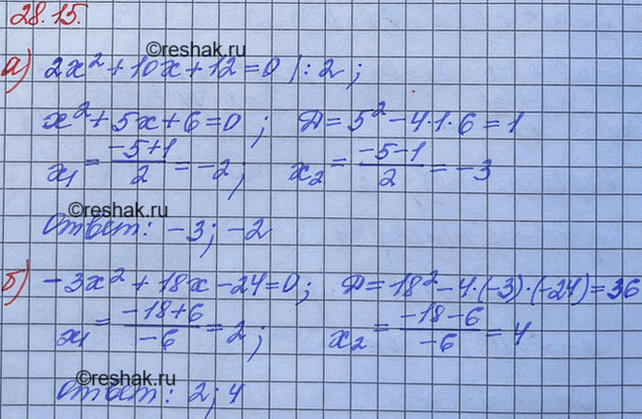 28.15.
©reshak.ru
а) 2x² + 10x + 12 = 0 |: 2 ;
x² + 5x + 6 = 0 ; D = 5² - 4·1·6 = 1
x₁ = (-5+1)/2 = -2 ; x₂ = (-5-1)/2 = -3
©reshak.ru
Ответ: -3 ; -2
б) -3x² + 18x - 24 = 0 ; D = 18² - 4·(-3)·(-24) = 36
x₁ = (-18+6)/(-6) = 2 ; x₂ = (-18-6)/(-6) = 4
©reshak.ru
Ответ: 2 ; 4